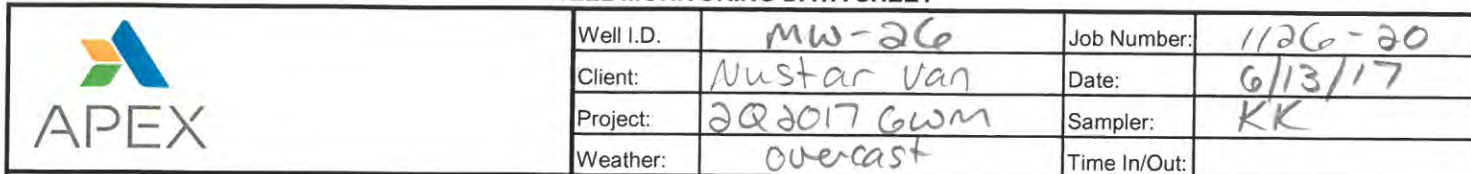 Well I.D. MW-26 Job Number: 1126-20
Client: Nustar Van Date: 6/13/17
Project: 2Q2017 GWM Sampler: KK
Weather: overcast Time In/Out:
APEX